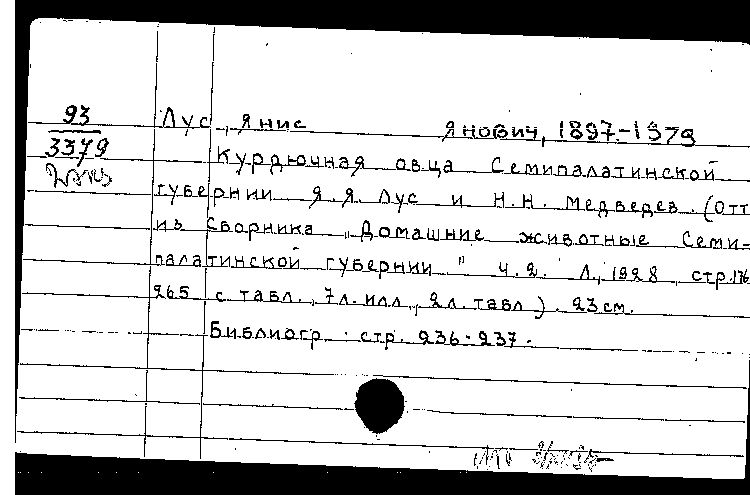 93
3379
Лус, Янис Янович, 1897-1979
Курдючная овца Семипалатинской
губернии Я.Я. Лус и Н.Н. Медведев. (Отт
из Сборника „Домашние животные Семи-
палатинской губернии" Ч.2. Л., 1928, стр.176
265 с табл., 7л. илл., 2л. табл). 23 см.
Библиогр. стр. 236-237.